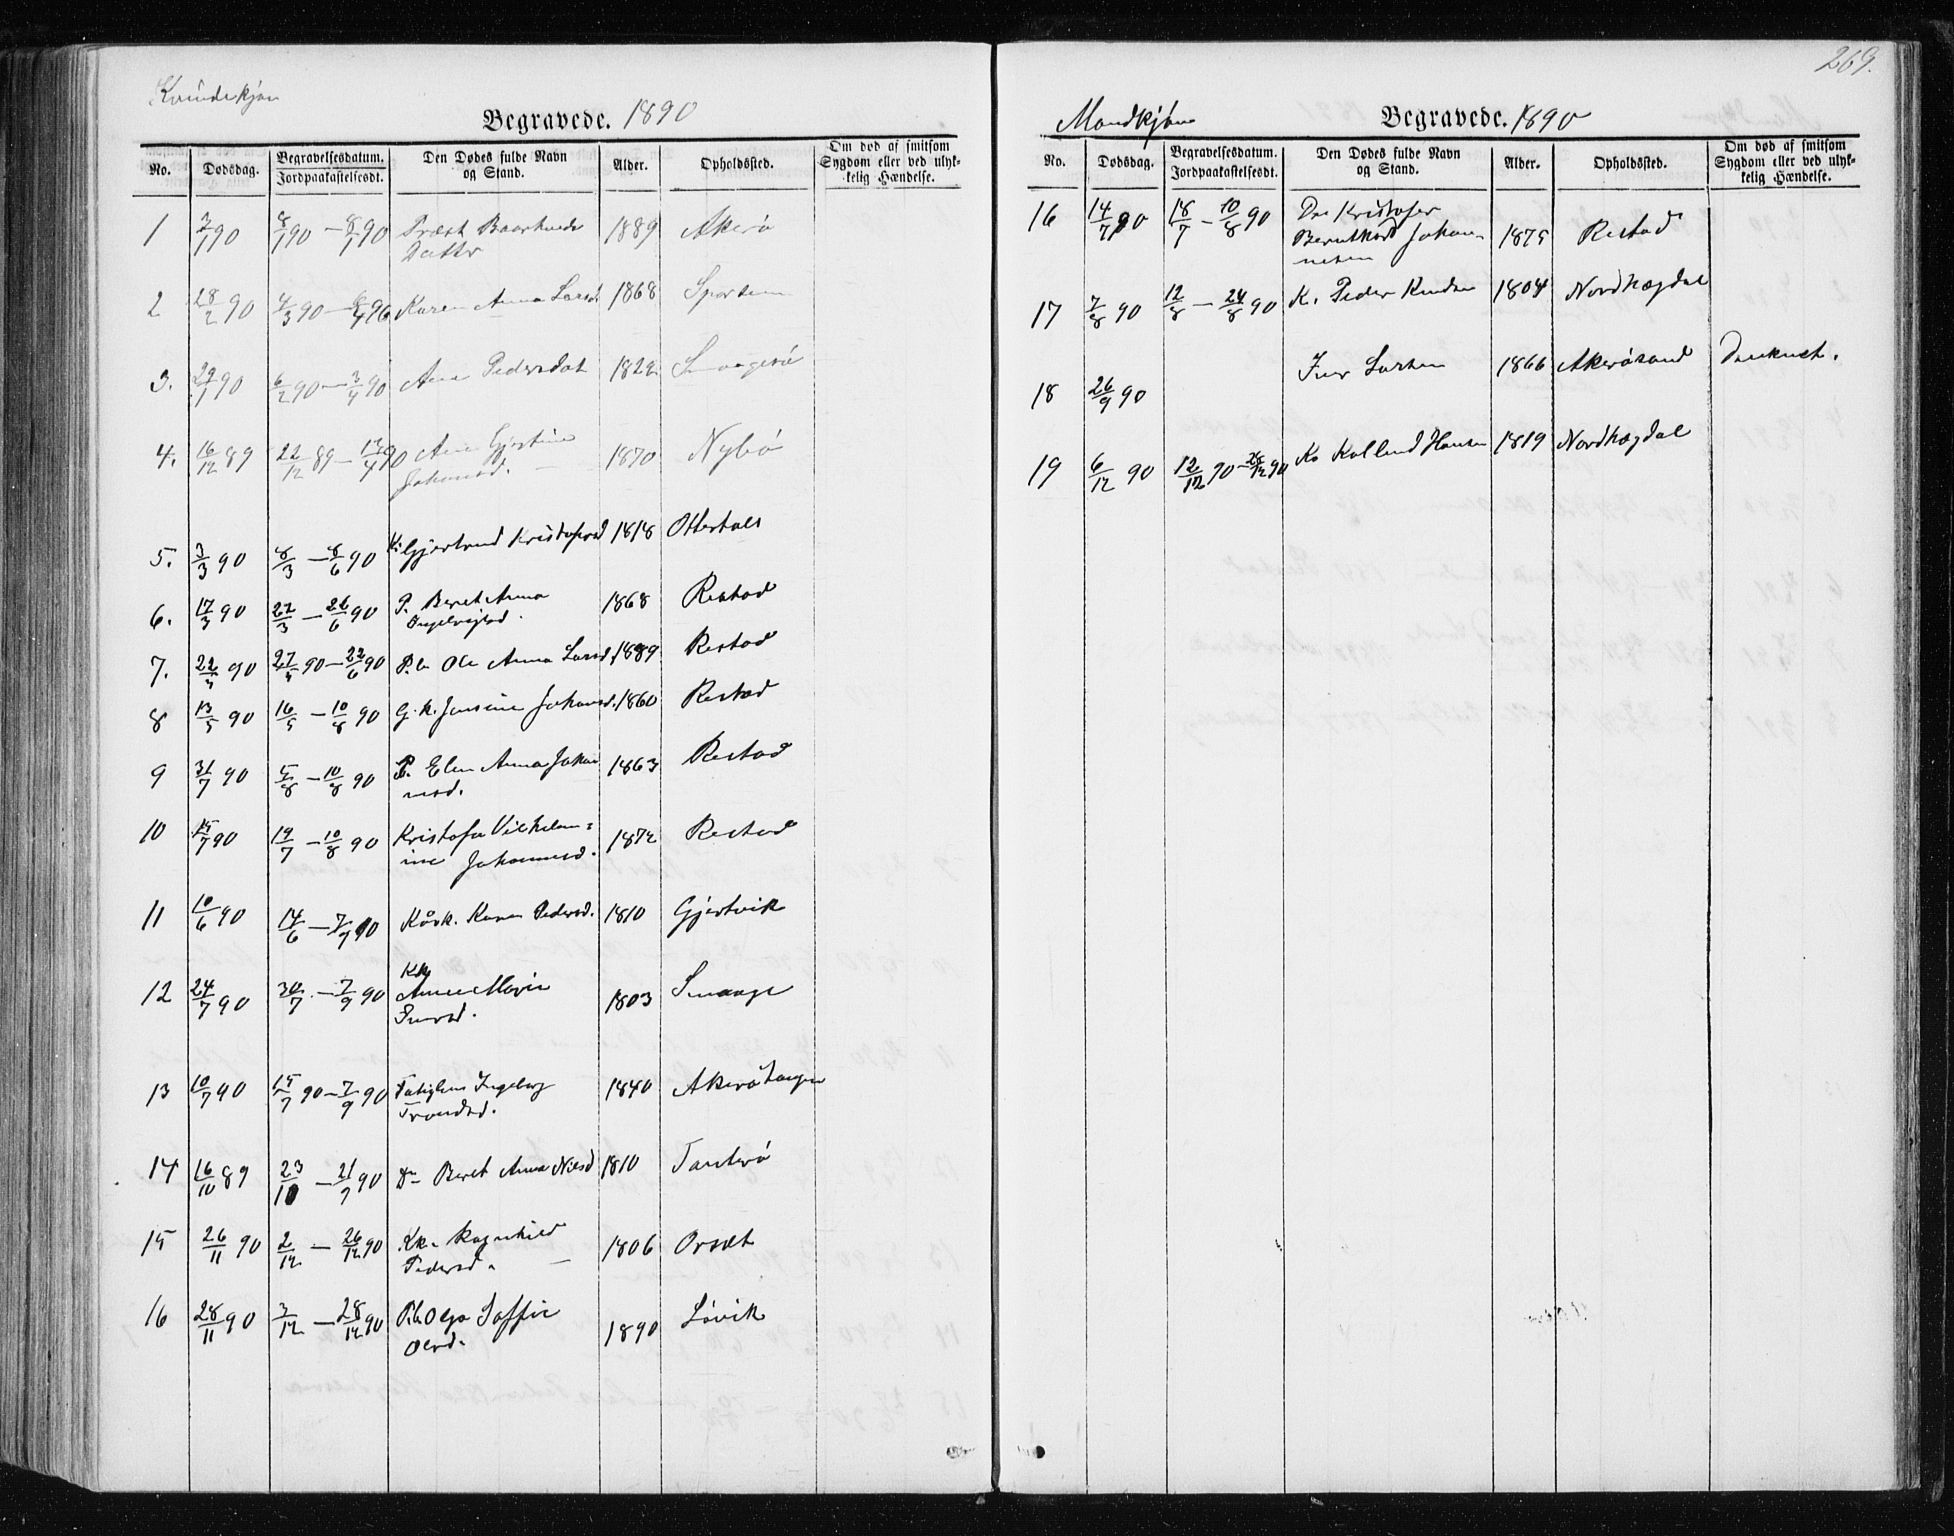 Kvindekjøn
Begravede. 1890
No. Dødsdag. Begravelsesdatum. Jordpaakastelsesdt. Den Dødes fulde Navn og Stand. Alder. Opholdssted. Om død af smitsom Sygdom eller ved ulykkelig Hændelse.
1 3/1 90 8/1 90 – 8/1 90 Præst 1889 Akerø
Datter
2 28/2 90 4/3 90 – Karen Anna Larsd. 1868
3. 29/1 90 6/2 90 – 3/4 90 Ane Pedersdat 1822 Smaagesø
4. 16/12 89 22/12 89 – 13/4 90 Ane Gjertine 1870 Nybø
Johansd.
5. 3/3 90 8/3 – 8/6 90 K. Gjertrud Kristofersd 1818 Otterhals
6. 17/3 90 22/3 – 26/6 90 P. Beret Anna 1868 Restad
Ingebrigtsd.
7. 22/4 90 27/4 90 – 22/6 90 P.b. Ole Anna Larsd. 1889 Restad
8 13/5 90 16/5 – 10/8 90 G.k. Jensine Johansd. 1860 Restad
9 31/7 90 5/8 – 10/8 90 P. Elen Anna Johan 1863 Restad
nesd.
10 15/7 90 19/7 – 10/8 90 Kristofa Vilhelm= 1872 Restad
ine Johannesd.
11 10/6 90 14/6 – 7/9 90 Kårk. Karen Pedersd. 1810 Gjertvik
12 24/7 90 30/7 – 7/9 90 Kk
Anne Marie 1803 Smaage
Iversd.
13 10/7 90 15/7 90 – 7/9 90 Fatiglem Ingeborg 1840 Akerøtangen
Trondsd.
14 16/10 89 23/10 – 21/9 90 Beret Anna Nilsd 1810 Tauterø
15 26/11 90 2/12 – 26/12 90 Kk. Ragnhild 1806 Orsæt
Pedersd.
16 28/11 90 3/12 – 28/12 90 P.b. Olga Soffie 1890 Løvik
Olsd.
269.
Mandkjøn
Begravede. 1890
No. Dødsdag. Begravelsesdatum. Jordpaakastelsesdt. Den Dødes fulde Navn og Stand. Alder. Opholdssted. Om død af smitsom Sygdom eller ved ulykkelig Hændelse.
16 14/7 90 18/7 – 10/8 90 Dre Kristofer
Bernthard Johan- 1875 Restad
nesen
17 7/8 90 12/8 – 24/8 90 K. Peder Knudsen 1804 Nordhægdal
18 26/9 90 Iver Larsen 1866 Akerøsand Druknet.
19 6/12 90 12/12 90 – 26/12 90 K. Hansen 1819 Nordhægdal